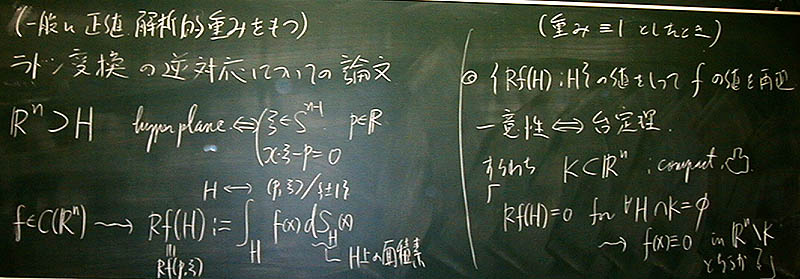 (一般に 正値 解析的重みをもつ)
ラドン変換の逆対応についての論文
ℝⁿ ⊃ H hyperplane ⇔ { ξ ∈ Sⁿ⁻¹ p ∈ ℝ
x·ξ - p = 0
H ↔ (p, ξ)/{±1}
f ∈ C(ℝⁿ) ⇝ Rf(H) := ∫_H f(x) dS_H(x)
‖
Rf(p, ξ)
H上の面積素
(重み ≡ 1 としたとき)
◎ {Rf(H) ; H} の値をもって f の値を再現
一意性 ⇔ 台定理.
すなわち K ⊂ ℝⁿ : compact, 凸
「Rf(H) = 0 for ∀H ∩ K = φ
⇝ f(x) ≡ 0 in ℝⁿ\K
どうか?」